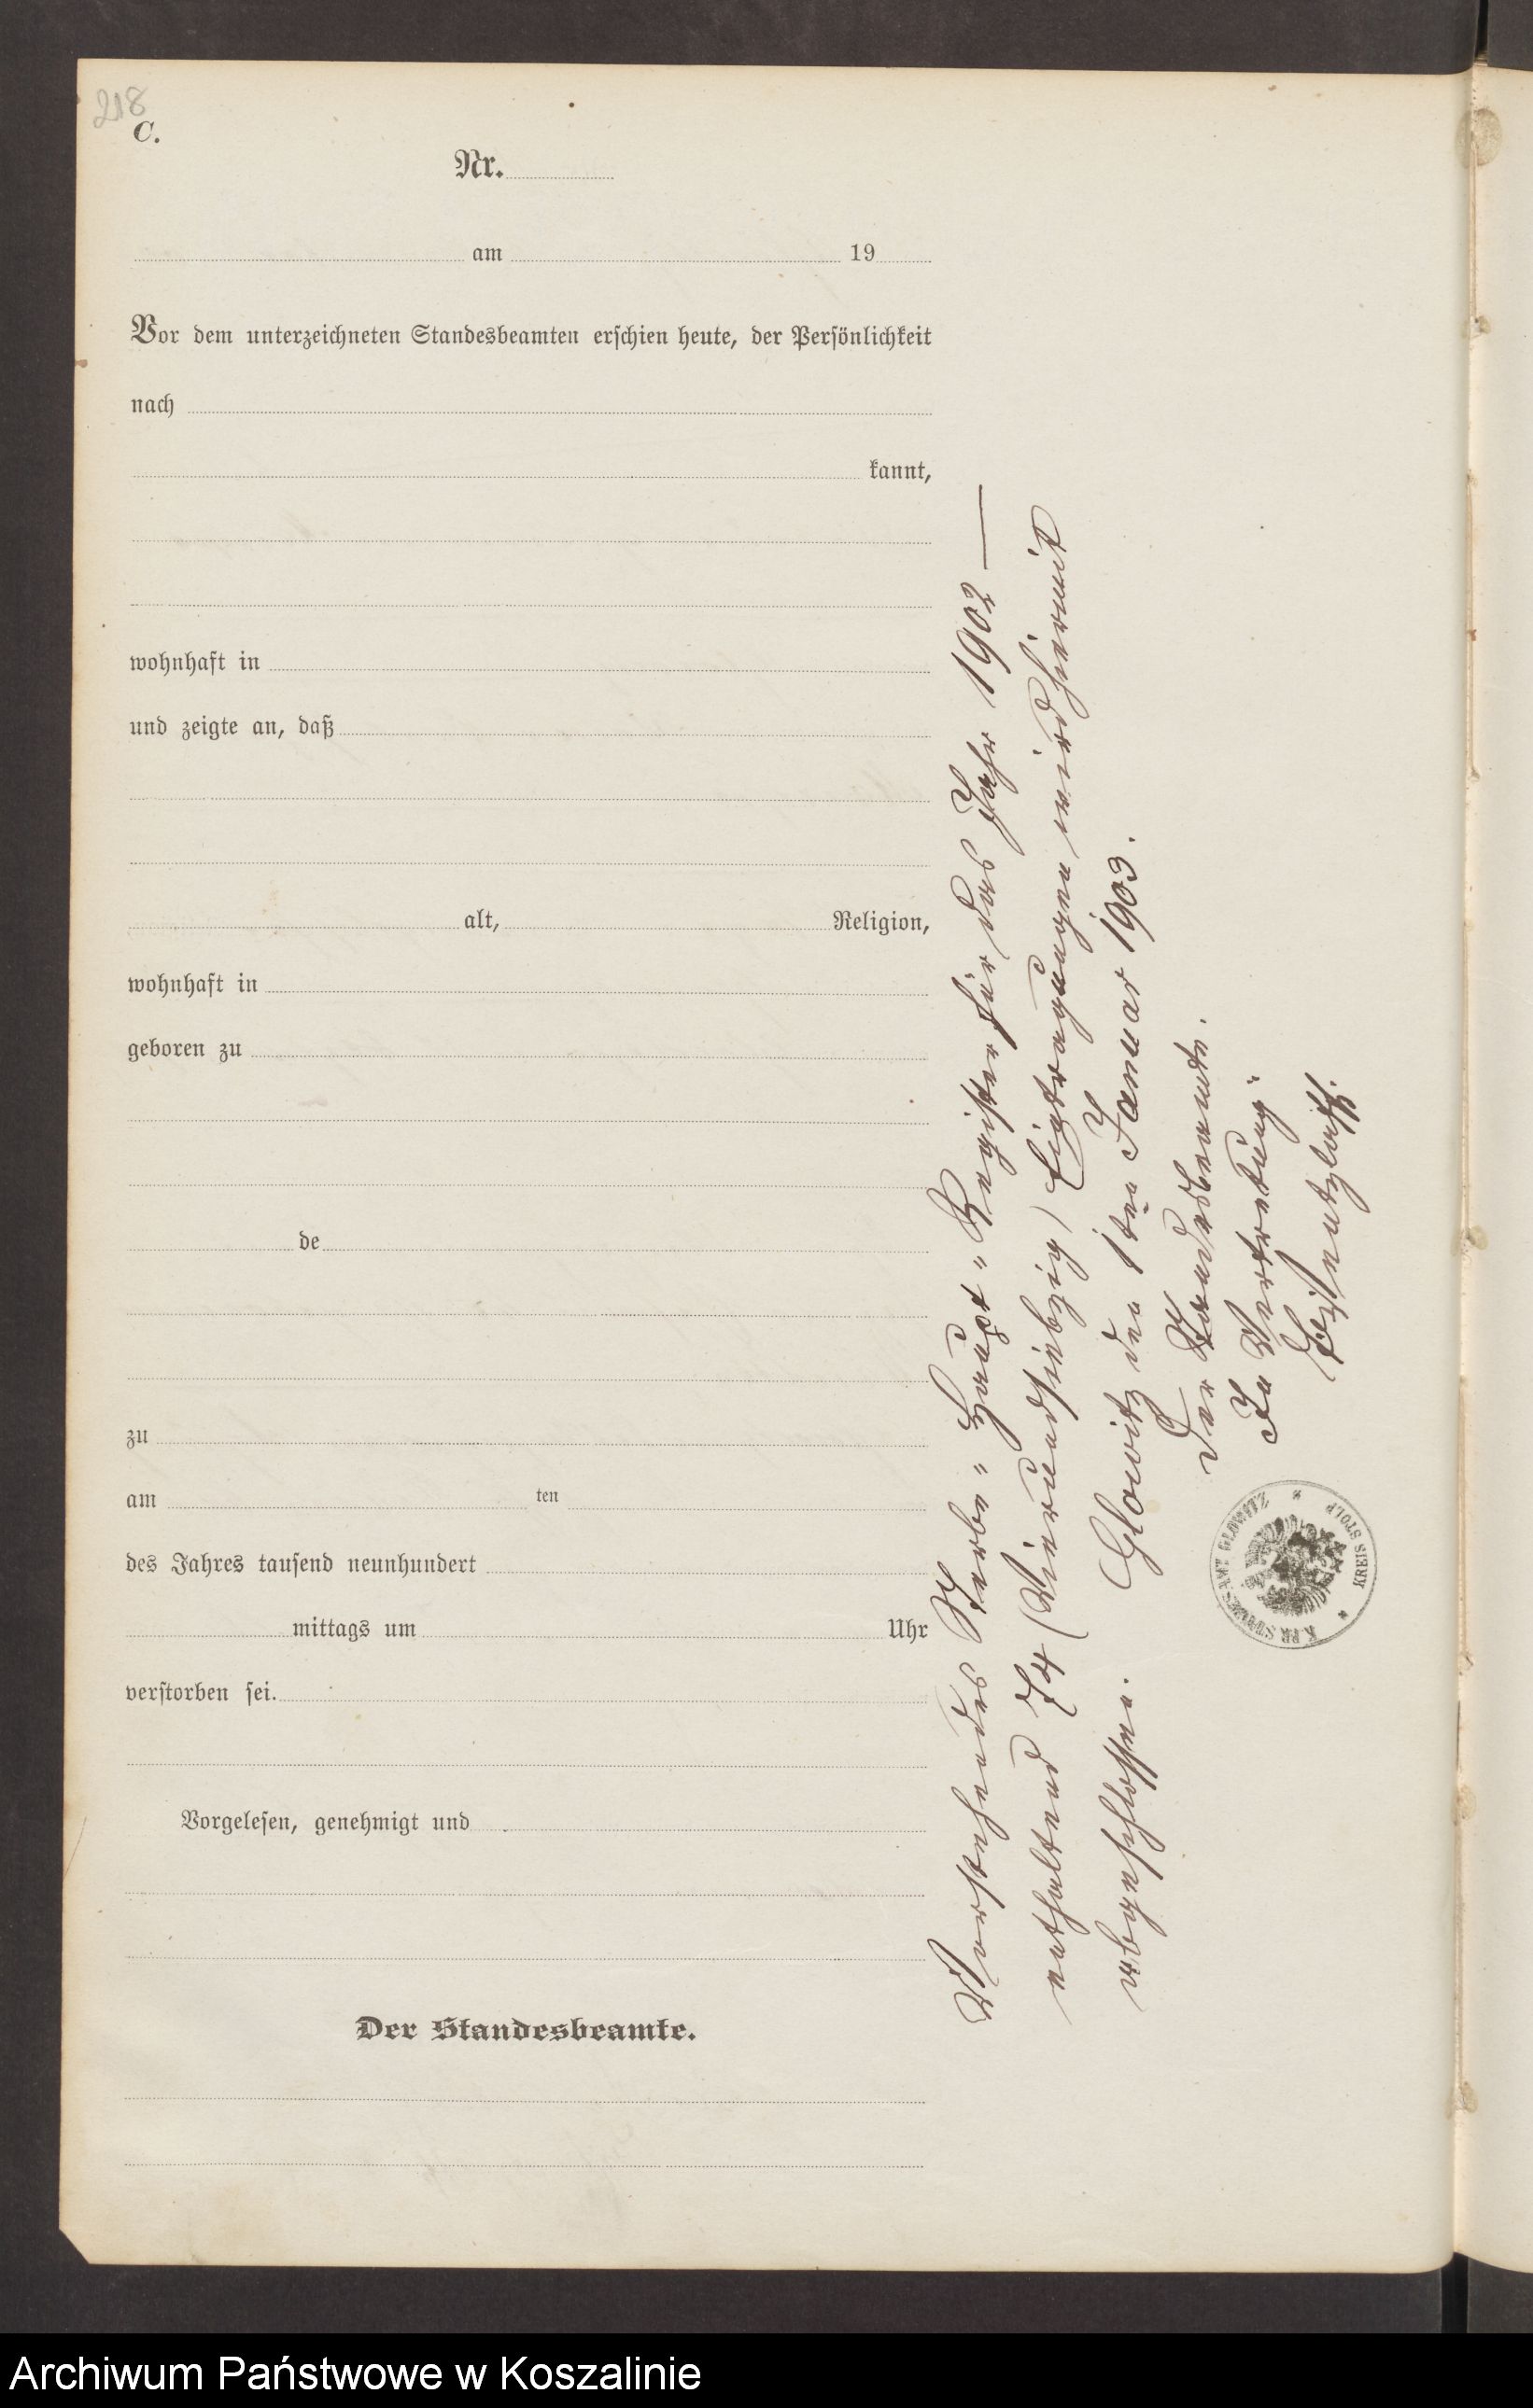 218
C.
Nr.
am 19
Vor dem unterzeichneten Standesbeamten erschien heute, der Persönlichkeit
nach
kannt,
wohnhaft in
und zeigte an, daß
alt, Religion,
wohnhaft in
geboren zu
de
zu
am ten
des Jahres tausend neunhundert
mittags um Uhr
verstorben sei.
Vorgelesen, genehmigt und
Der Standesbeamte.
Vorstehendes Sterbe "Haupt" Register für das Jahr 1902 —
enthaltend 74 (Vierundsiebzig) Eigtragungen wird hiermit
abgeschlossen. Glowitz den 1ten Januar 1903.
Der Standesbeamte.
In Vertretung
K. PR. STANDESAMT GLOWITZ
* KREIS STOLP *
Archiwum Państwowe w Koszalinie